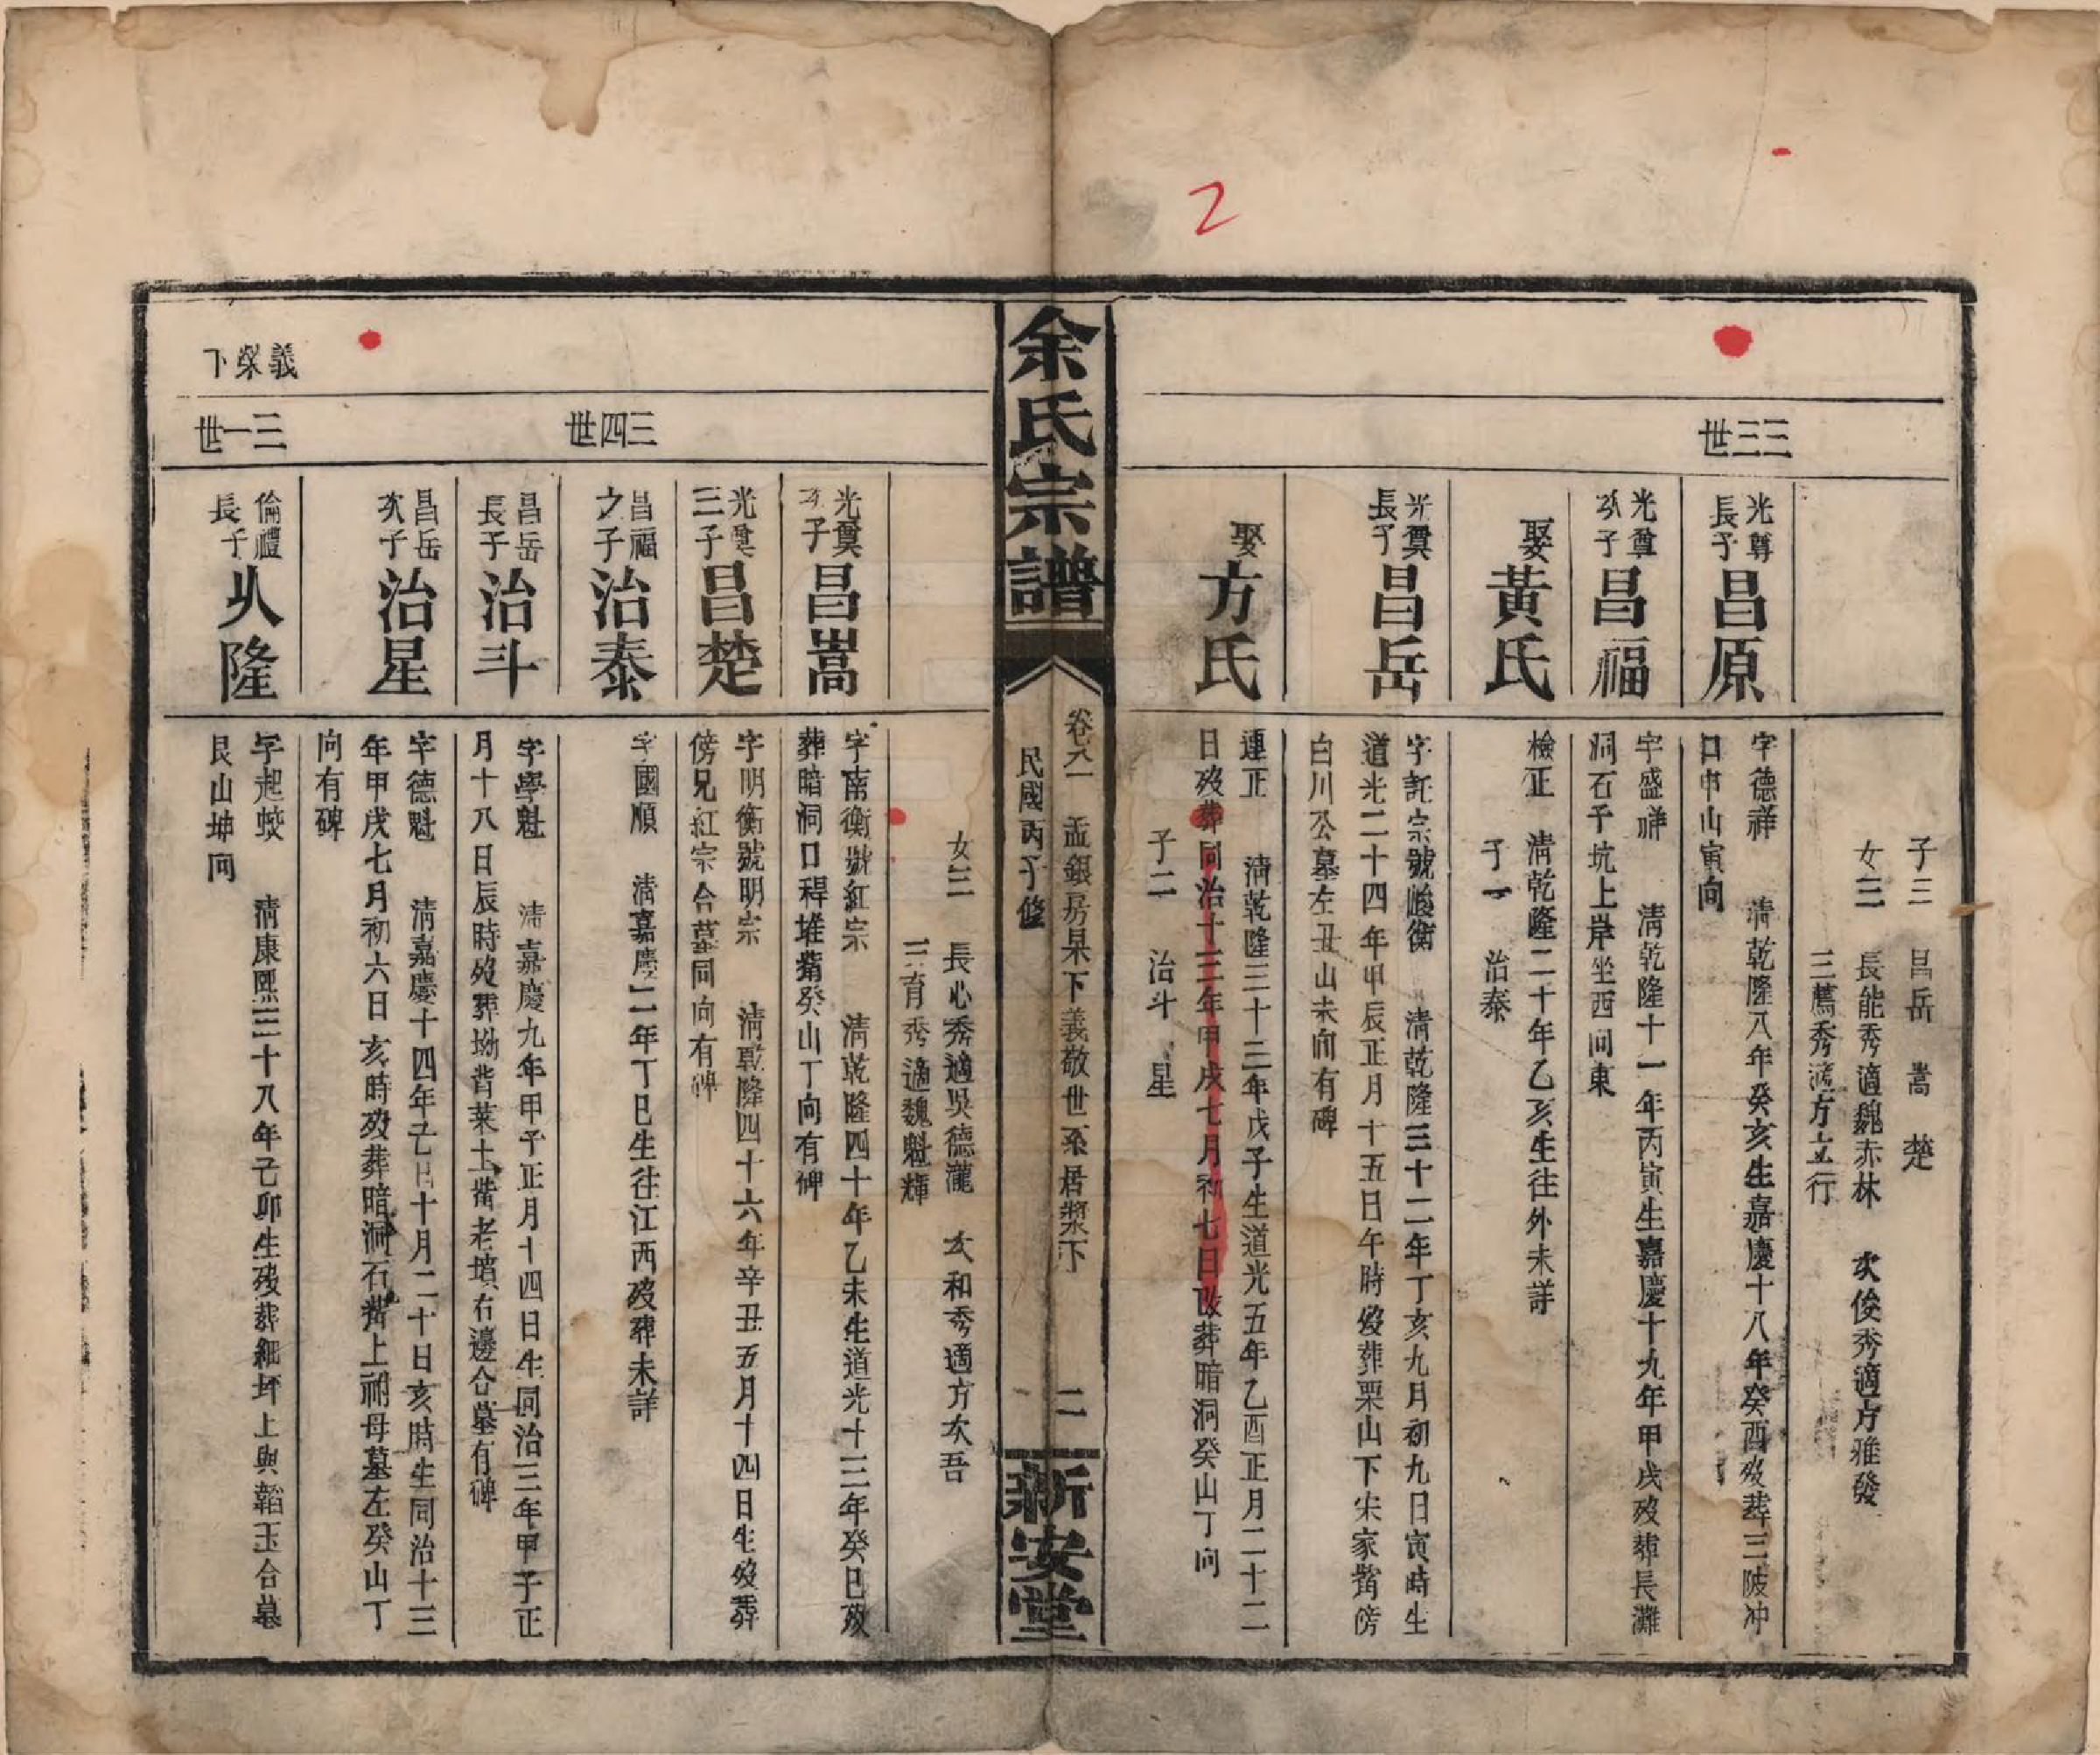 2
三三世
子三　昌岳　嵩　楚
女三　長能秀適魏赤林　次俊秀適方雅發
三鳶秀適方立行
光尊長子昌原
字德祥　清乾隆八年癸亥生嘉慶十八年癸酉歿葬三陂冲
口申山寅向
光尊次子昌福
字盛祥　清乾隆十一年丙寅生嘉慶十九年甲戌歿葬長灘
洞石子坑上岸坐西向東
娶黃氏
檢正　清乾隆二十年乙亥生往外未詳
子一　治泰
光奠長子昌岳
字託宗號峻衡　清乾隆三十二年丁亥九月初九日寅時生
道光二十四年甲辰正月十五日午時歿葬栗山下宋家嘴傍
白川公墓左丑山未向有碑
娶方氏
運正　清乾隆三十三年戊子生道光五年乙酉正月二十二
日歿葬同治十三年甲戌七月初七日改葬暗洞癸山丁向
子二　治斗　星
余氏宗譜
卷 孟銀房杲下義敬世系居漿下　二
民國丙子修
新安堂
義榮下
三四世
女三　長心秀適吳德瀧　次和秀適方次吾
三育秀適魏魁輝
光奠次子昌嵩
字南衡號紅宗　清乾隆四十年乙未生道光十三年癸巳歿
葬暗洞口稈堆嘴癸山丁向有碑
光奠三子昌楚
字明衡號明宗　清乾隆四十六年辛丑五月十四日生歿葬
傍兄紅宗合墓同向有碑
昌福之子治泰
字國順　清嘉慶二年丁巳生往江西歿葬未詳
昌岳長子治斗
字學魁　清嘉慶九年甲子正月十四日生同治三年甲子正
月十八日辰時歿葬坳背菜土嘴老墳右邊合墓有碑
昌岳次子治星
字德魁　清嘉慶十四年己巳十月二十日亥時生同治十三
年甲戌七月初六日亥時歿葬暗洞石嘴上祔母墓左癸山丁
向有碑
三一世
倫禮長子乆隆
字起蛟　清康熙三十八年己卯生歿葬細坪上與韜玉合墓
艮山坤向